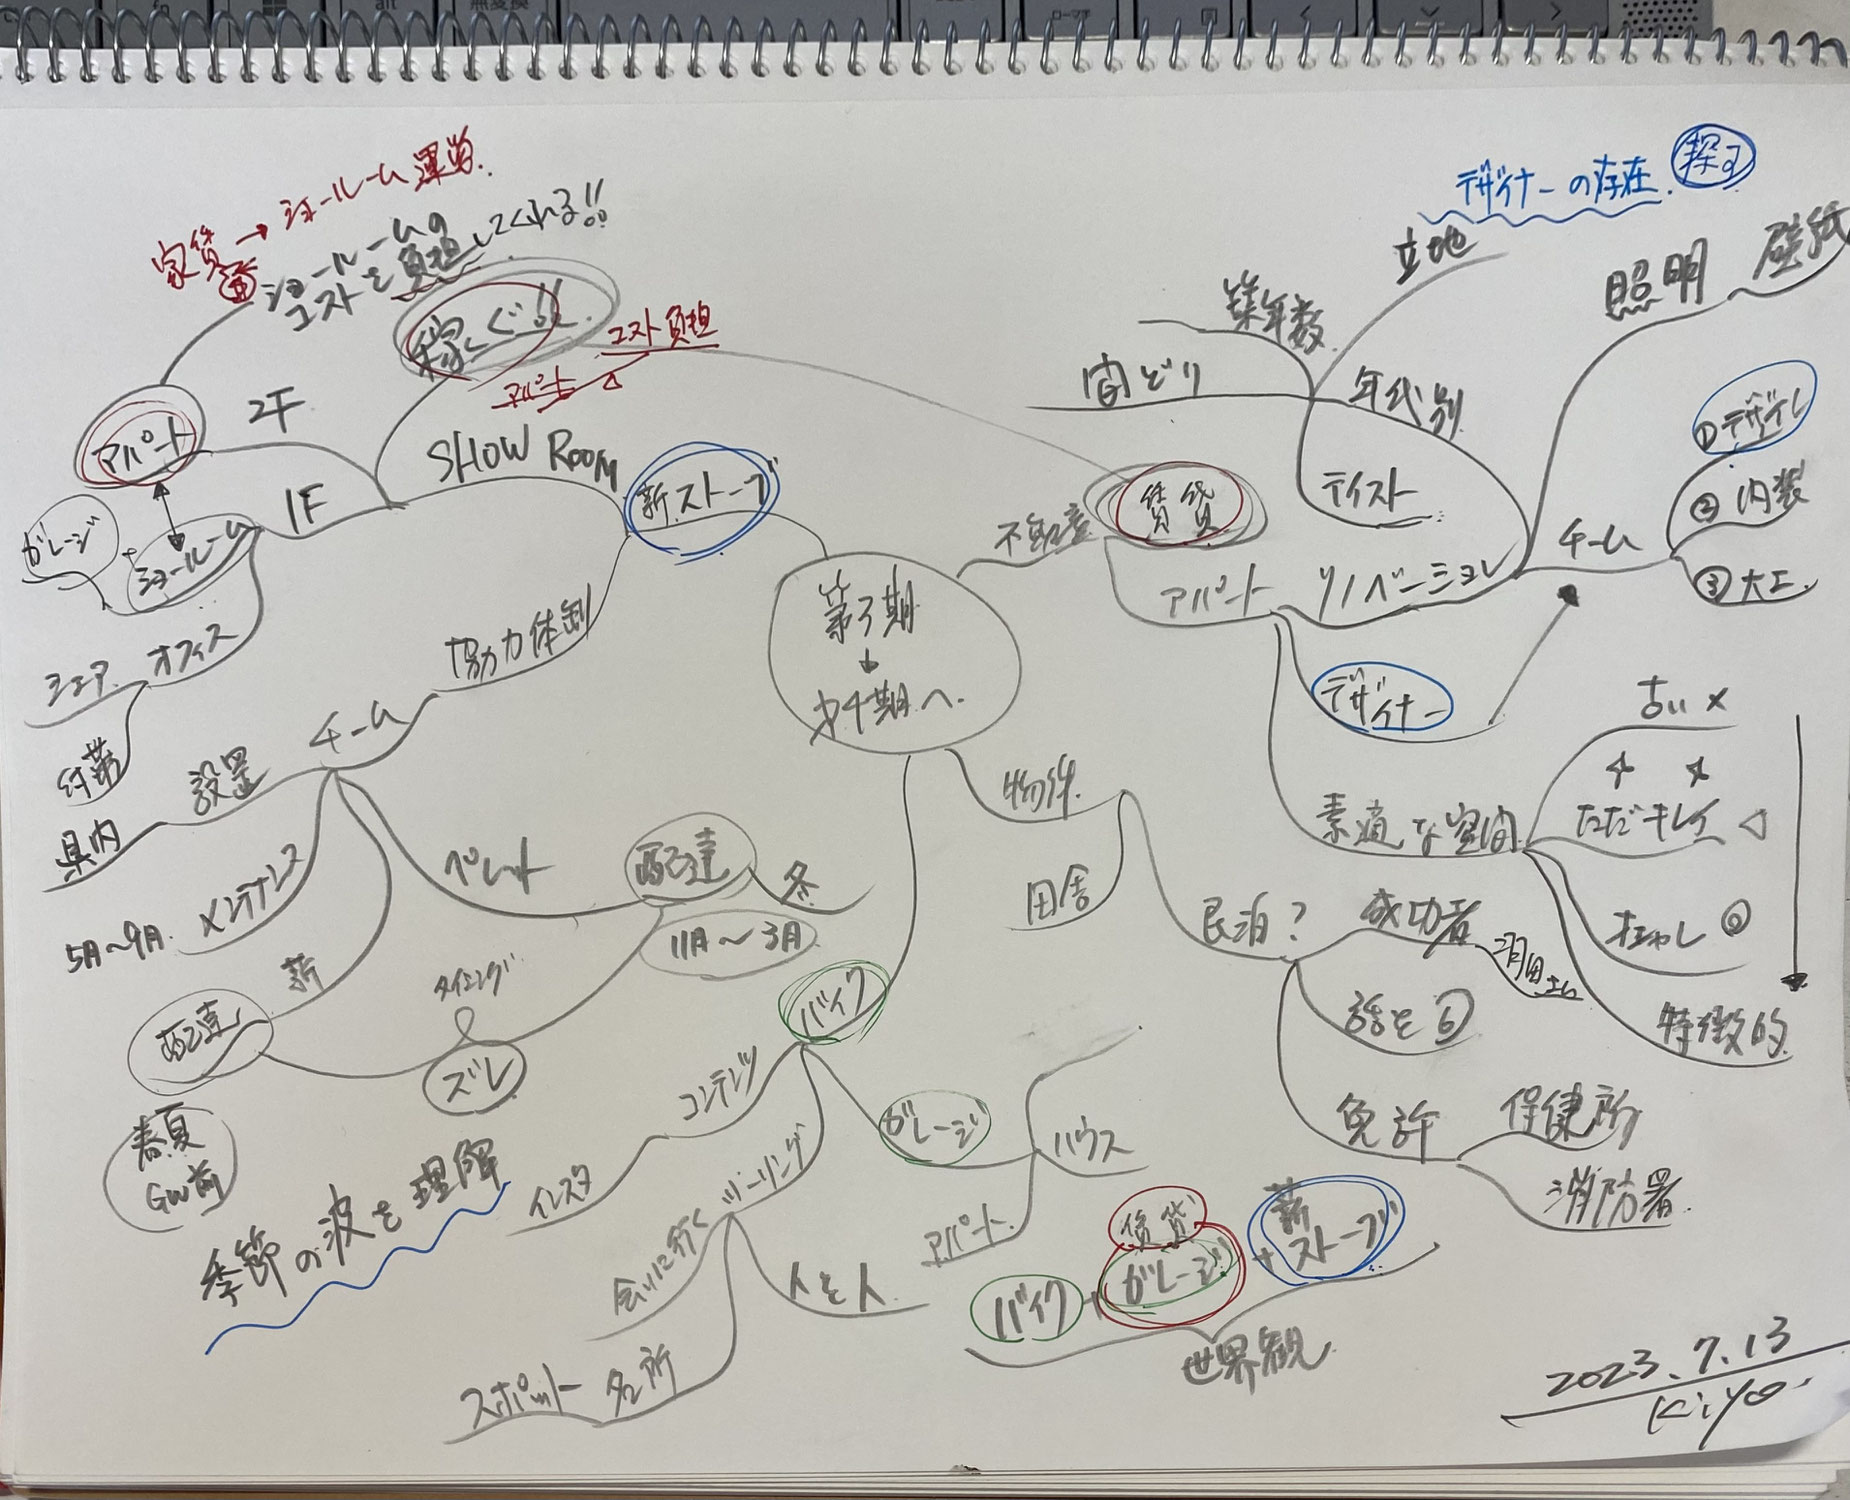 alt
無変換
家賃 → ショールーム運営.
ショールームの
コストを負担してくれる!!
稼ぐ!!
コスト負担
アパート
アパート
2F
1F
SHOW Room
薪ストーブ
ガレージ
ショールーム
シェア オフィス
協力体制
チーム
設置
県内
メンテナンス
5月〜9月.
ペレット
配達
冬
11月〜3月
薪
配達
タイミング
ズレ
春夏
GW前
季節の波を理解
第3期
↓
第4期へ.
不動産
賃貸
アパート
リノベーション
間どり
築年数
立地
年代別
テイスト
デザイナーの存在. 探す
照明
壁紙
チーム
①デザイン
②内装
③大工.
デザイナー
素適な空間
古い ×
ただキレイ △
オシャレ ◎
特徴的
物件
田舎
民泊?
成功者
話を
免許
保健所
消防署.
バイク
コンテンツ
インスタ
ツーリング
会いに行く
人を人
スポット 名所
ガレージ
ハウス
アパート.
賃貸
バイク + ガレージ + 薪ストーブ
世界観
2023.7.13
Kiyo